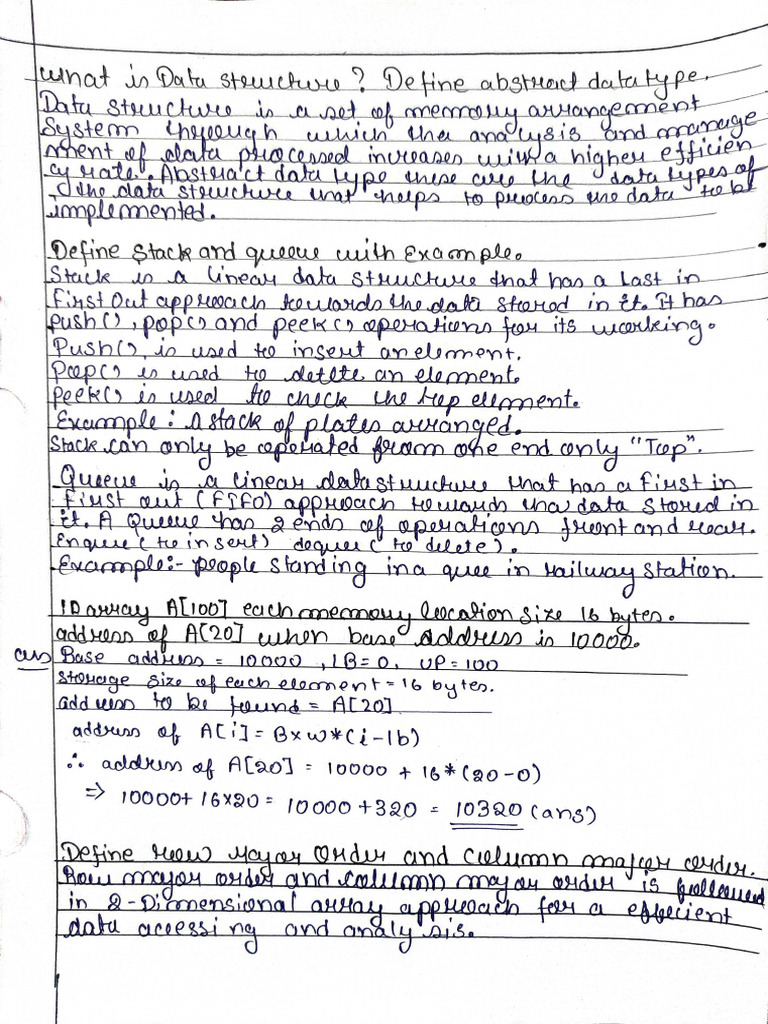 What is Data structure? Define abstract data type.
Data structure is a set of memory arrangement
System through which the analysis and manage
ment of data processed increases with a higher efficien
cy rate. Abstract data type these are the data types of
the data structure that helps to process the data to be
implemented.
Define Stack and queue with Example.
Stack is a linear data structure that has a Last in
First Out approach towards the data stored in it. It has
push(), pop() and peek() operations for its working.
Push() is used to insert an element.
Pop() is used to delete an element.
Peek() is used to check the top element.
Example: A stack of plates arranged.
Stack can only be operated from one end only "Top".
Queue is a linear data structure that has a first in
first out (FIFO) approach towards the data stored in
it. A Queue has 2 ends of operations front and rear.
Enque (to insert) deque (to delete).
Example:- people standing in a quee in railway station.
1D array A[100] each memory location size 16 bytes.
address of A[20] when base address is 10000.
ans Base address = 10000, LB=0, UP=100
Storage size of each element = 16 bytes.
address to be found = A[20]
address of A[i] = B×w*(i-lb)
∴ address of A[20] = 10000 + 16*(20-0)
⇒ 10000+16×20 = 10000+320 = 10320 (ans)
Define row major Order and column major order.
Row major order and column major order is followed
in 2-Dimensional array approach for a effecient
data accessing and analysis.